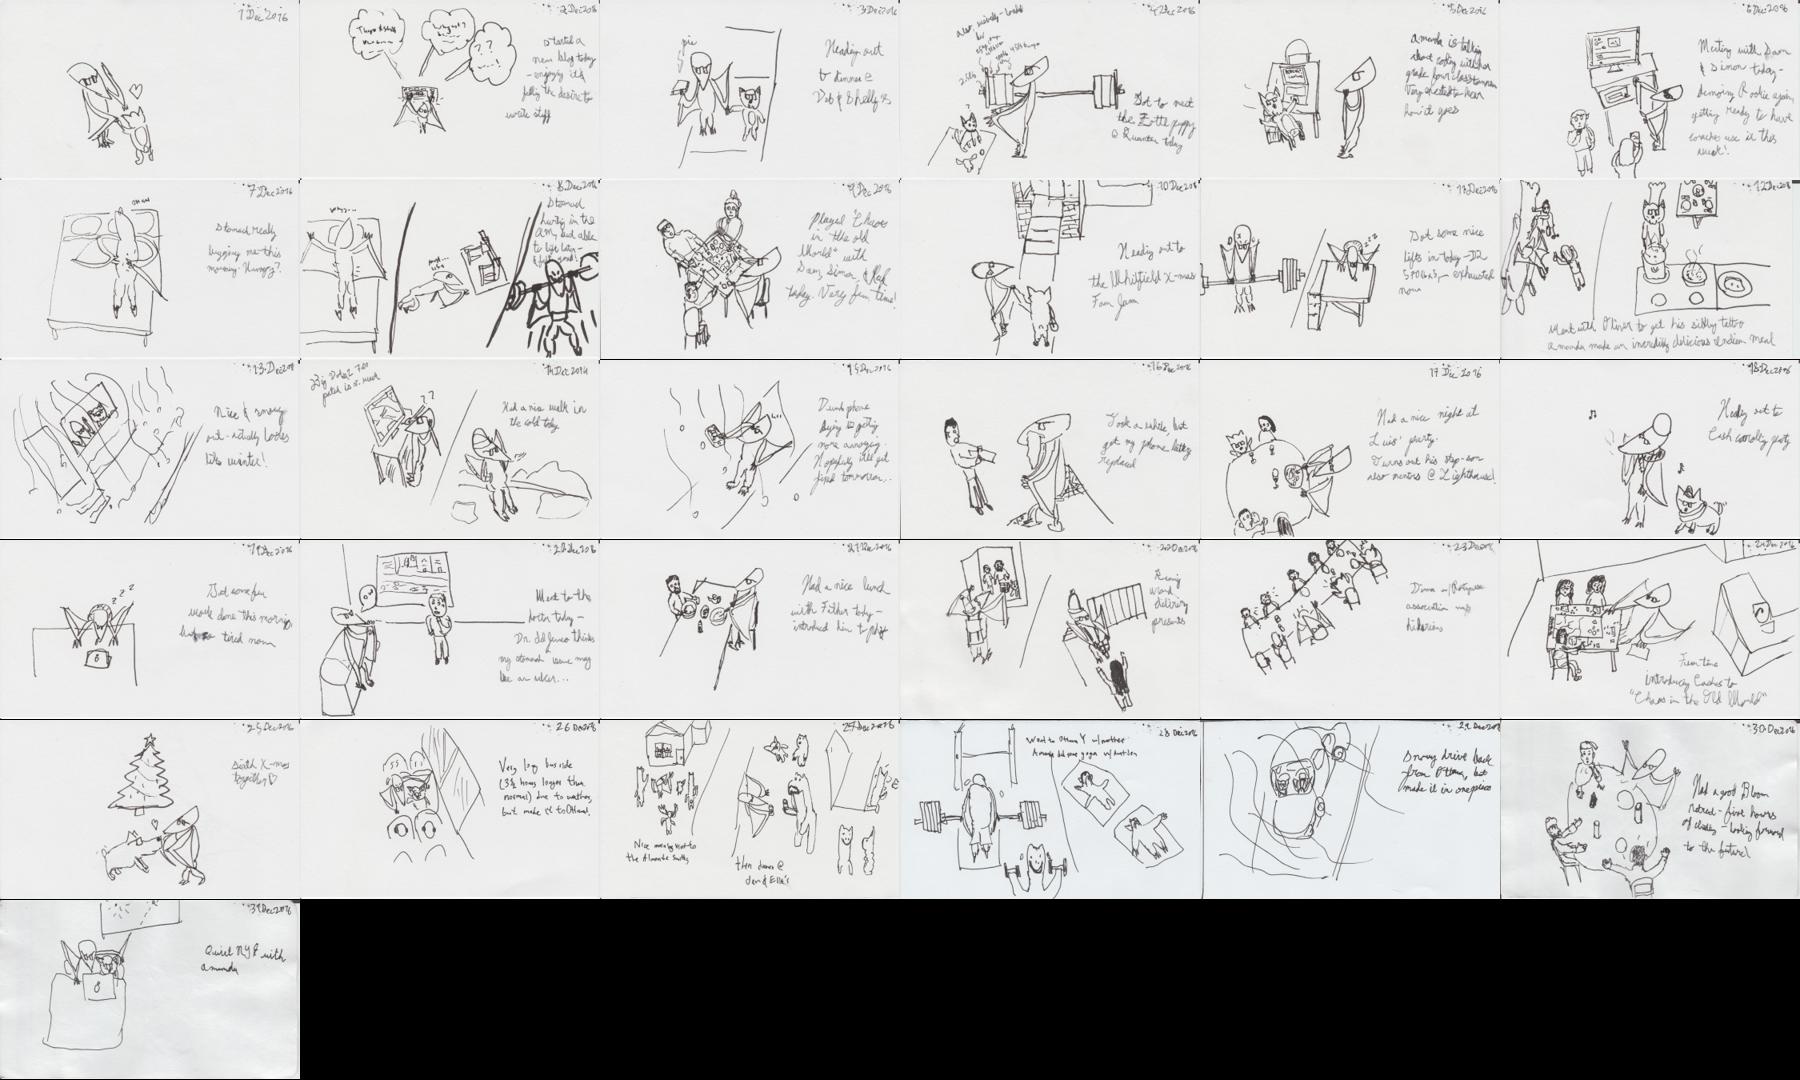 1 Dec 2016
2 Dec 2016
Started a
new blog today
- enjoying it's
the desire to
write stuff
3 Dec 2016
pie
Heading out
to dinner @
Deb & Shelly's
4 Dec 2016
Got to meet
the Lotte puppy
@ Quantum today
5 Dec 2016
Amanda is talking
about coding with her
grade four classroom
Very excited to hear
how it goes
6 Dec 2016
Meeting with Sam
& Simon today -
demoing Rookie again,
getting ready to have
coaches use it this
week!
7 Dec 2016
Stomach really
bugging me this
morning. Hungry?
8 Dec 2016
Stomach
hurting in the
AM, but able
to lift later -
& felt good!
9 Dec 2016
played Chaos
in the old
World with
Sam, Simon, & Rob
today. Very fun time!
10 Dec 2016
Heading out to
the Whitfield X-mas
Fam Jam
11 Dec 2016
Got some nice
lifts in today -
exhausted
now
12 Dec 2016
Went with Oliver to get his tattoo
Amanda made an incredibly delicious Indian meal
13 Dec 2016
Nice & snowy
out - actually looks
like winter!
14 Dec 2016
Big Dota2 7.00
patch is out
??
Had a nice walk in
the cold today
15 Dec 2016
Dumb phone
dying is getting
more annoying.
Hopefully it'll get
fixed tomorrow...
16 Dec 2016
Took a while, but
got my phone battery
replaced
17 Dec 2016
Had a nice night at
Luis' party.
Turns out his step-son
also mentors @ Lighthouse!
18 Dec 2016
Heading out to
Cash carolling party
19 Dec 2016
z z z
Got some
work done this morning
but so tired now
20 Dec 2016
Went to the
doctor today -
thinks
my stomach issue may
be an ulcer...
21 Dec 2016
Had a nice lunch
with Father today -
introduced him to pho
22 Dec 2016
delivering
presents
23 Dec 2016
Dinner w/ Portuguese
association
hilarious
24 Dec 2016
Fun time
introducing to
"Chaos in the Old World"
25 Dec 2016
Sixth X-mas
together ♡
26 Dec 2016
Very long bus ride
(3½ hours longer than
normal) due to weather,
but made it to Ottawa!
27 Dec 2016
Nice morning visit to
the Almonte
then dinner @
& Ella's
28 Dec 2016
Went to Ottawa Y w/ mother
Amanda did some yoga w/
29 Dec 2016
Snowy drive back
from Ottawa, but
made it in one piece
30 Dec 2016
Had a good Bloom
retreat - five hours
of - looking forward
to the future!
31 Dec 2016
Quiet NYE with
Amanda